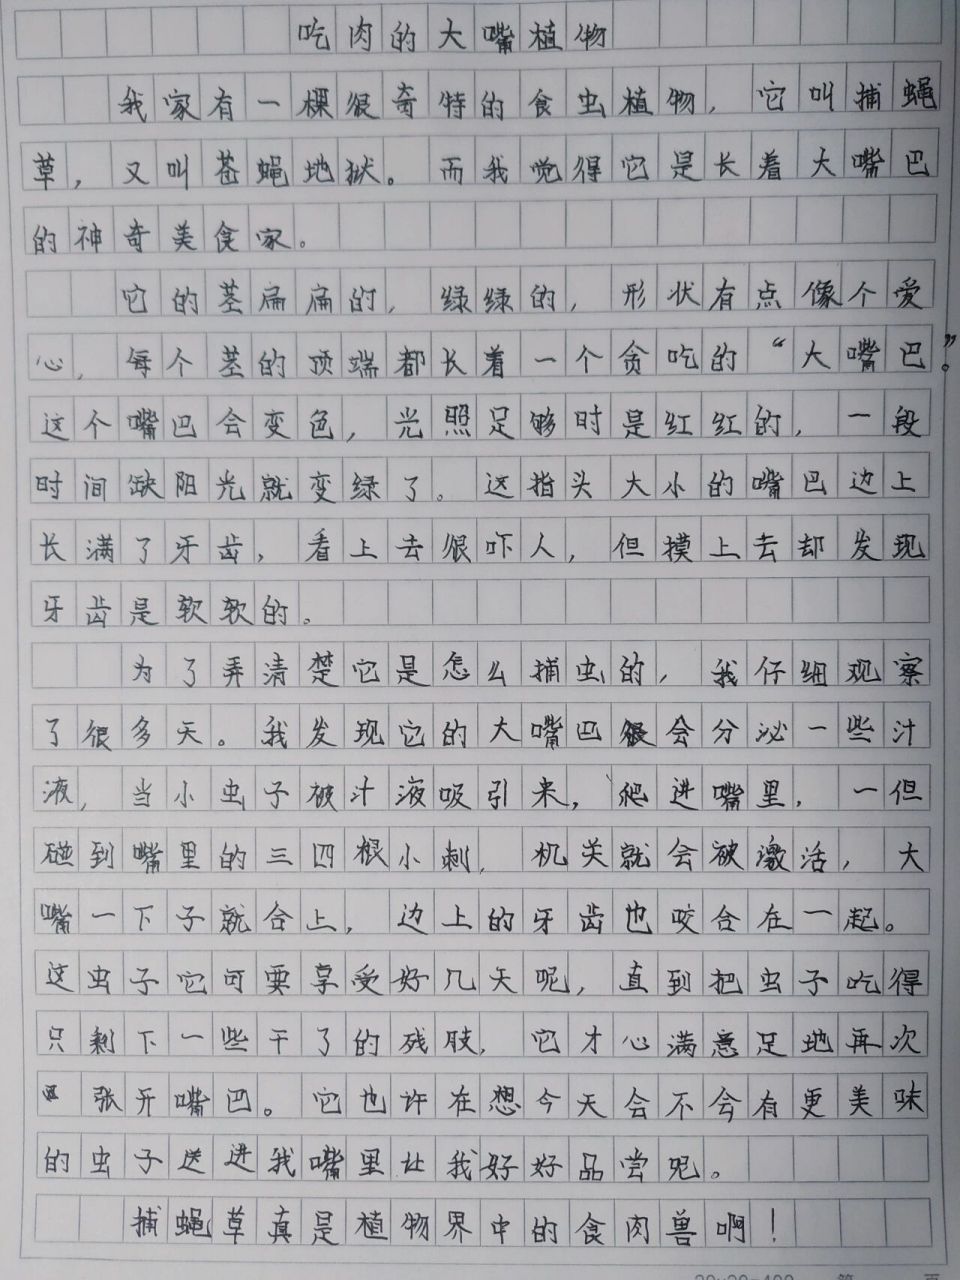 吃肉的大嘴植物
我家有一棵很奇特的食虫植物，它叫捕蝇
草，又叫苍蝇地狱。而我觉得它是长着大嘴巴
的神奇美食家。
它的茎扁扁的，绿绿的，形状有点像个爱
心，每个茎的顶端都长着一个贪吃的“大嘴巴”。
这个嘴巴会变色，光照足够时是红红的，一段
时间缺阳光就变绿了。这指头大小的嘴巴边上
长满了牙齿，看上去很吓人，但摸上去却发现
牙齿是软软的。
为了弄清楚它是怎么捕虫的，我仔细观察
了很多天。我发现它的大嘴巴会分泌一些汁
液，当小虫子被汁液吸引来，爬进嘴里，一但
碰到嘴里的三四根小刺，机关就会被激活，大
嘴一下子就合上，边上的牙齿也咬合在一起。
这虫子它可要享受好几天呢，直到把虫子吃得
只剩下一些干了的残肢，它才心满意足地再次
张开嘴巴。它也许在想今天会不会有更美味
的虫子送进我嘴里让我好好品尝呢。
捕蝇草真是植物界中的食肉兽啊！
20×20=400 第 页